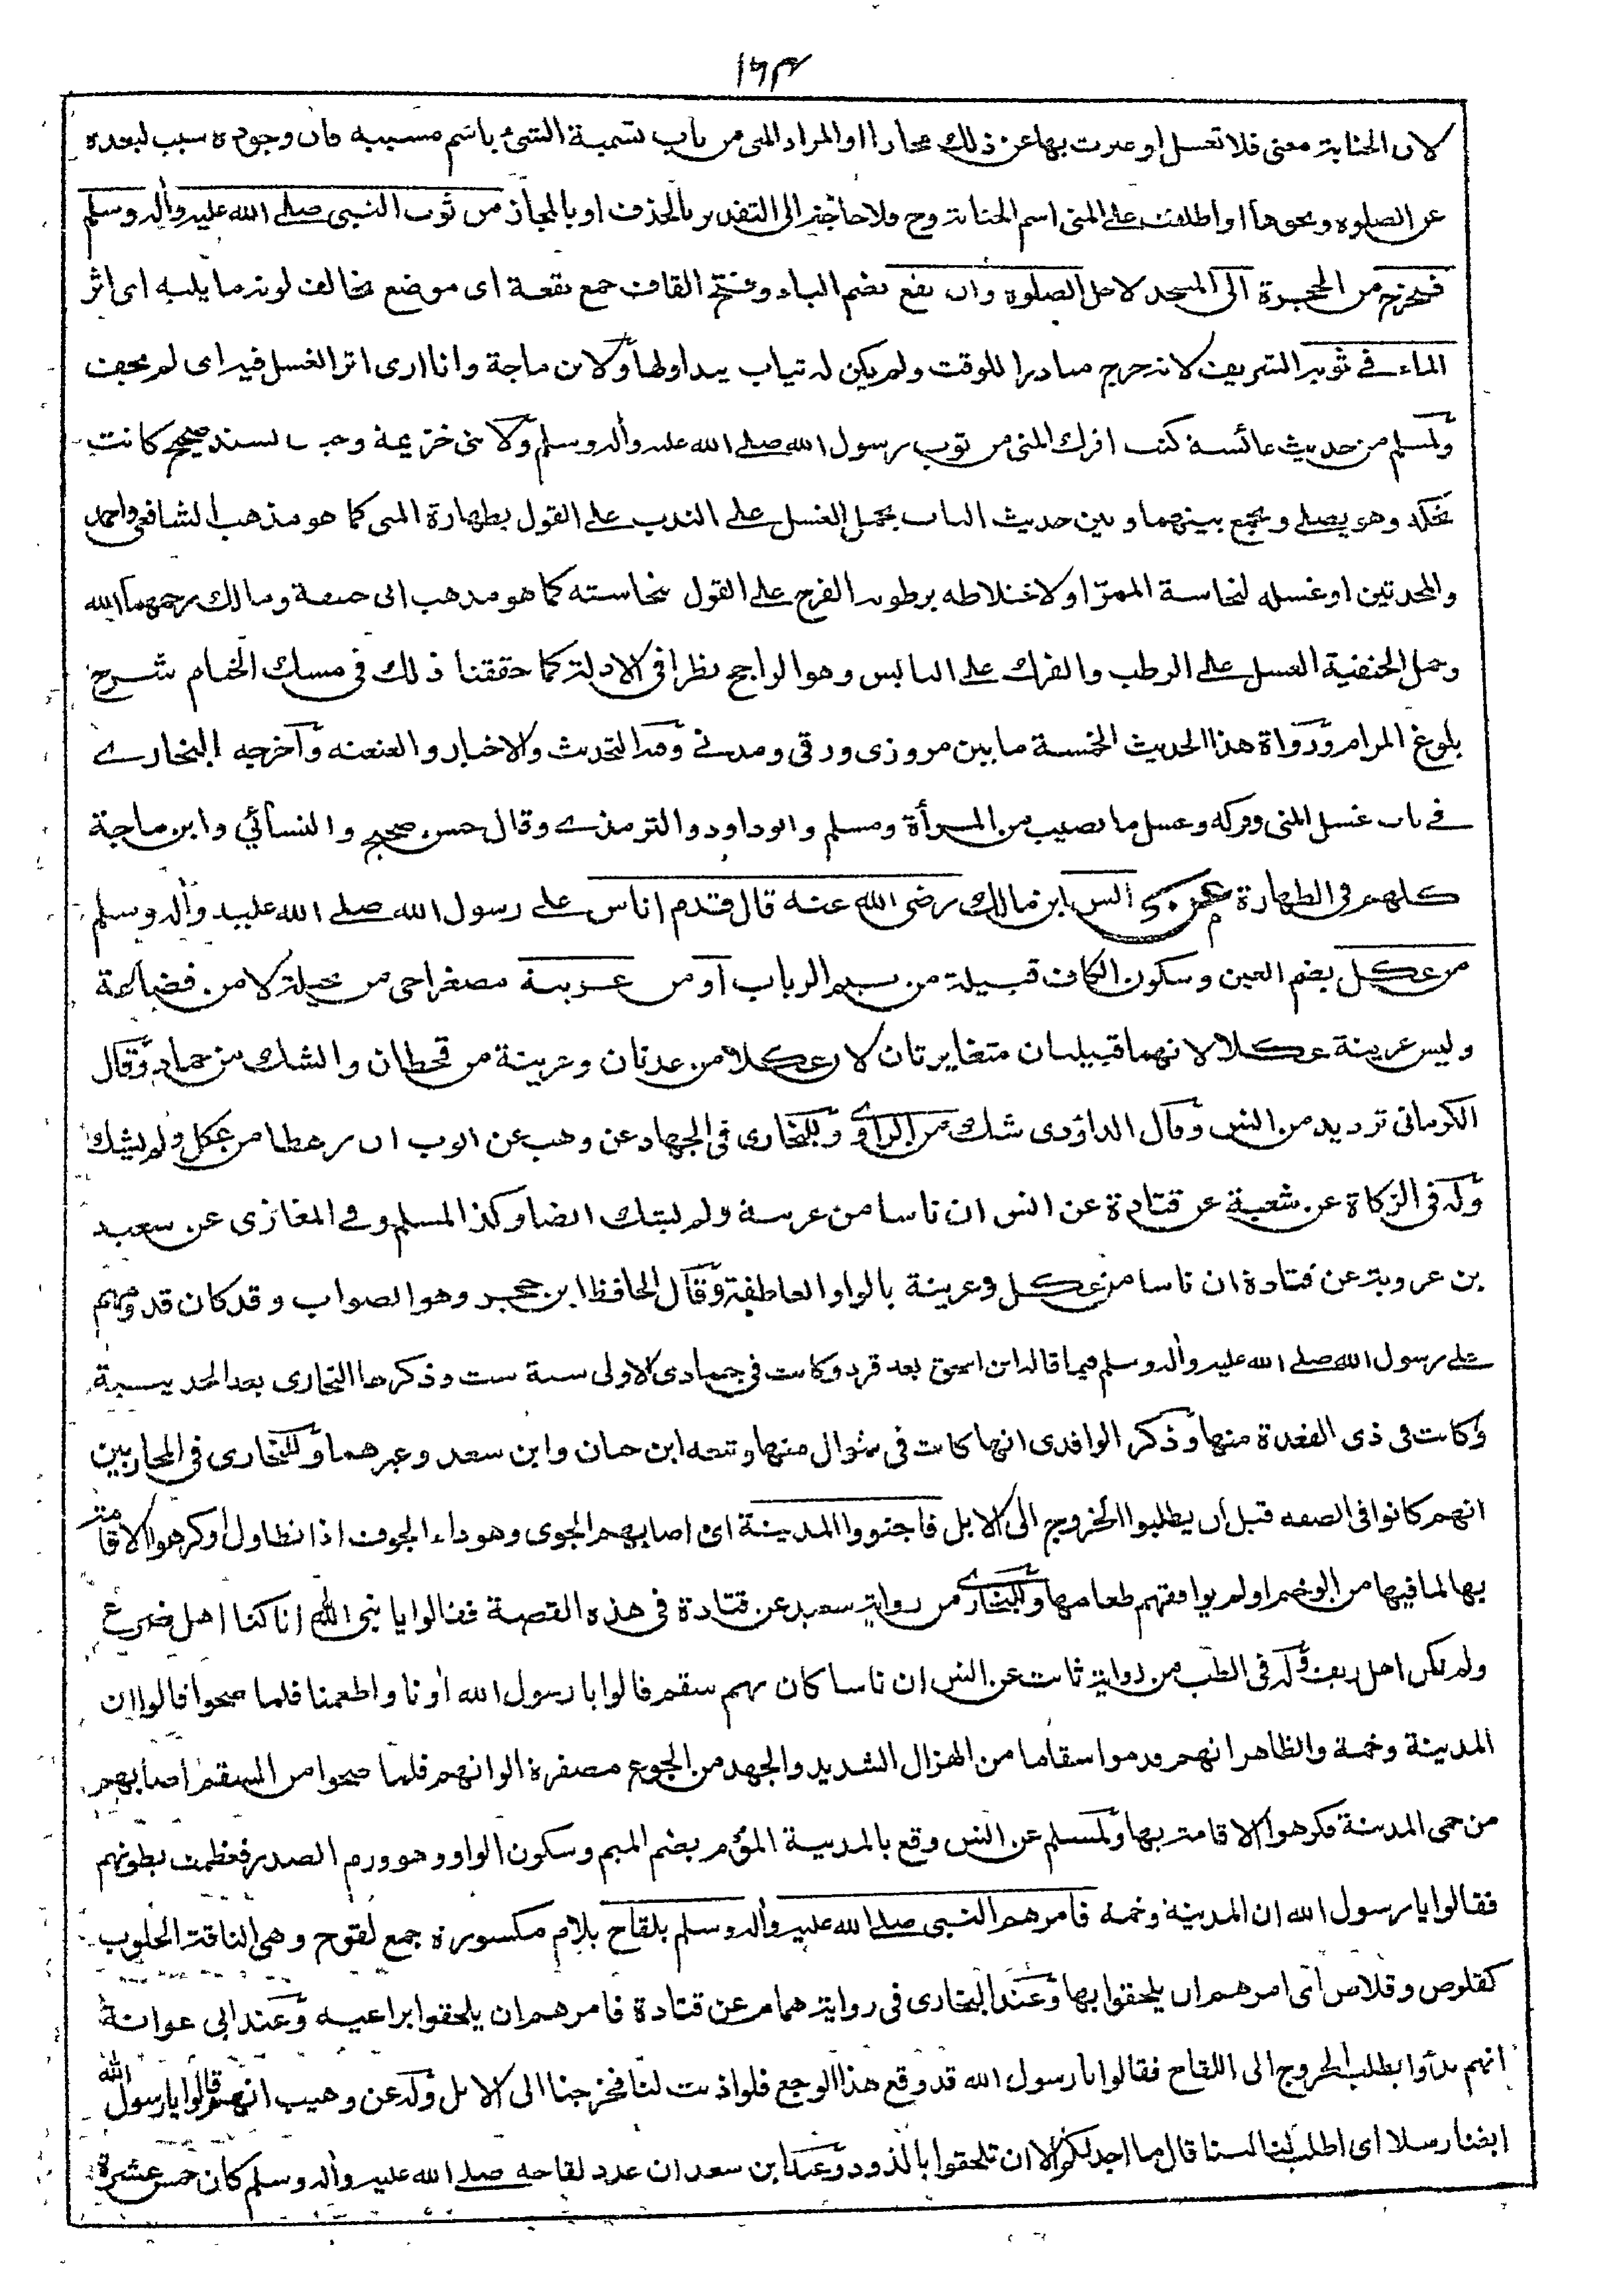 ١٦٣
لان الجنابة معنى فلا تغسل او عبرت بها عن ذلك مجازا او المراد المنى من باب تسمية الشئ باسم مسببه فان وجوده سبب لبعده
عن الصلوة ونحوها او اطلقت على المنى اسم الجنابة وح فلا حاجة الى التقدير بالحذف او بالمجاز من ثوب النبى صلى الله عليه وآله وسلم
فيخرج من الحجرة الى المسجد لاجل الصلوة وان بقع بضم الباء وفتح القاف جمع بقعة اى موضع يخالف لونه ما يليه اى اثر
الماء فى ثوبه الشريف لانه خرج مبادرا للوقت ولم يكن له ثياب يتداولها ولابن ماجة وانا ارى اثر الغسل فيه اى لم يجف
ولمسلم من حديث عائشة كنت افرك المنى من ثوب رسول الله صلى الله عليه وآله وسلم ولابنى خزيمة وحبان بسند صحيح كانت
تحكه وهو يصلى ويجمع بينهما وبين حديث الباب بحمل الغسل على الندب على القول بطهارة المنى كما هو مذهب الشافعى واحمد
والمحدثين او غسله لنجاسة الممر او لاختلاطه برطوبة الفرج على القول بنجاسته كما هو مذهب ابى حنيفة ومالك رحمهما الله
وحمل الحنفية الغسل على الرطب والفرك على اليابس وهو الراجح نظرا فى الادلة كما حققنا ذلك فى مسك الختام شرح
بلوغ المرام ورواة هذا الحديث الخمسة ما بين مروزى ورقى ومدنى وفيه التحديث والاخبار والعنعنه وأخرجه البخارى
فى باب غسل المنى وفركه وغسل ما يصيب من المرأة ومسلم وابو داود والترمذى وقال حسن صحيح والنسائي وابن ماجة
كلهم فى الطهارة عن انس ابن مالك رضى الله عنه قال قدم اناس على رسول الله صلى الله عليه وآله وسلم
من عكل بضم العين وسكون الكاف قبيلة من تيم الرباب أو من عرينة مصغرا حى من بجيلة لا من قضاعة
وليس عرينة عكلا لانهما قبيلتان متغايرتان لان عكلا من عدنان وعرينة من قحطان والشك من حماد وقال
الكرمانى ترديد من انس وقال الداؤدى شك من الراوى وللبخارى فى الجهاد عن وهيب عن ايوب ان رهطا من عكل ولم يشك
وله فى الزكاة عن شعبة عن قتادة عن انس ان ناسا من عرينة ولم يشك ايضا وكذا لمسلم وفى المغازى عن سعيد
بن عروبة عن قتادة ان ناسا من عكل وعرينة بالواو العاطفة وقال الحافظ ابن حجر وهو الصواب وقد كان قدومهم
على رسول الله صلى الله عليه وآله وسلم فيما قاله ابن اسحق بعد قرد وكانت فى جمادى الاولى سنة ست وذكرها البخارى بعد الحديبية
وكانت فى ذى القعدة منها وذكر الواقدى انها كانت فى شوال منها وتبعه ابن حبان وابن سعد وغيرهما وللبخارى فى المحاربين
انهم كانوا فى الصفه قبل ان يطلبوا الخروج الى الابل فاجتووا المدينة اى اصابهم الجوى وهو داء الجوف اذا تطاول او كرهوا الاقامة
بها لما فيها من الوخم او لم يوافقهم طعامها وللبخارى من رواية سعيد عن قتادة فى هذه القصة فقالوا يا نبى الله انا كنا اهل ضرع
ولم نكن اهل ريف وله فى الطب من رواية ثابت عن انس ان ناسا كان بهم سقم قالوا يا رسول الله أونا واطعمنا فلما صحوا قالوا ان
المدينة وخمة والظاهر انهم قدموا سقاما من الهزال الشديد والجهد من الجوع مصفرة الوانهم فلما صحوا من السقم اصابهم
من حمى المدينة فكرهوا الاقامة بها ولمسلم عن انس وقع بالمدينة المؤم بضم الميم وسكون الواو وهو ورم الصدر فعظمت بطونهم
فقالوا يا رسول الله ان المدينة وخمة فامرهم النبى صلى الله عليه وآله وسلم بلقاح بلام مكسورة جمع لقوح وهى الناقة الحلوب
كقلوص وقلاص أى امرهم ان يلحقوا بها وعند البخارى فى رواية همام عن قتادة فامرهم ان يلحقوا براعيه وعند ابى عوانة
انهم بدأوا بطلب الخروج الى اللقاح فقالوا يا رسول الله قد وقع هذا الوجع فلو اذنت لنا فخرجنا الى الابل وله عن وهيب انهم قالوا يا رسول الله
ابغنا رسلا اى اطلب لنا لبنا قال ما اجد لكم الا ان تلحقوا بالذود وعند ابن سعد ان عدد لقاحه صلى الله عليه وآله وسلم كان خمس عشرة